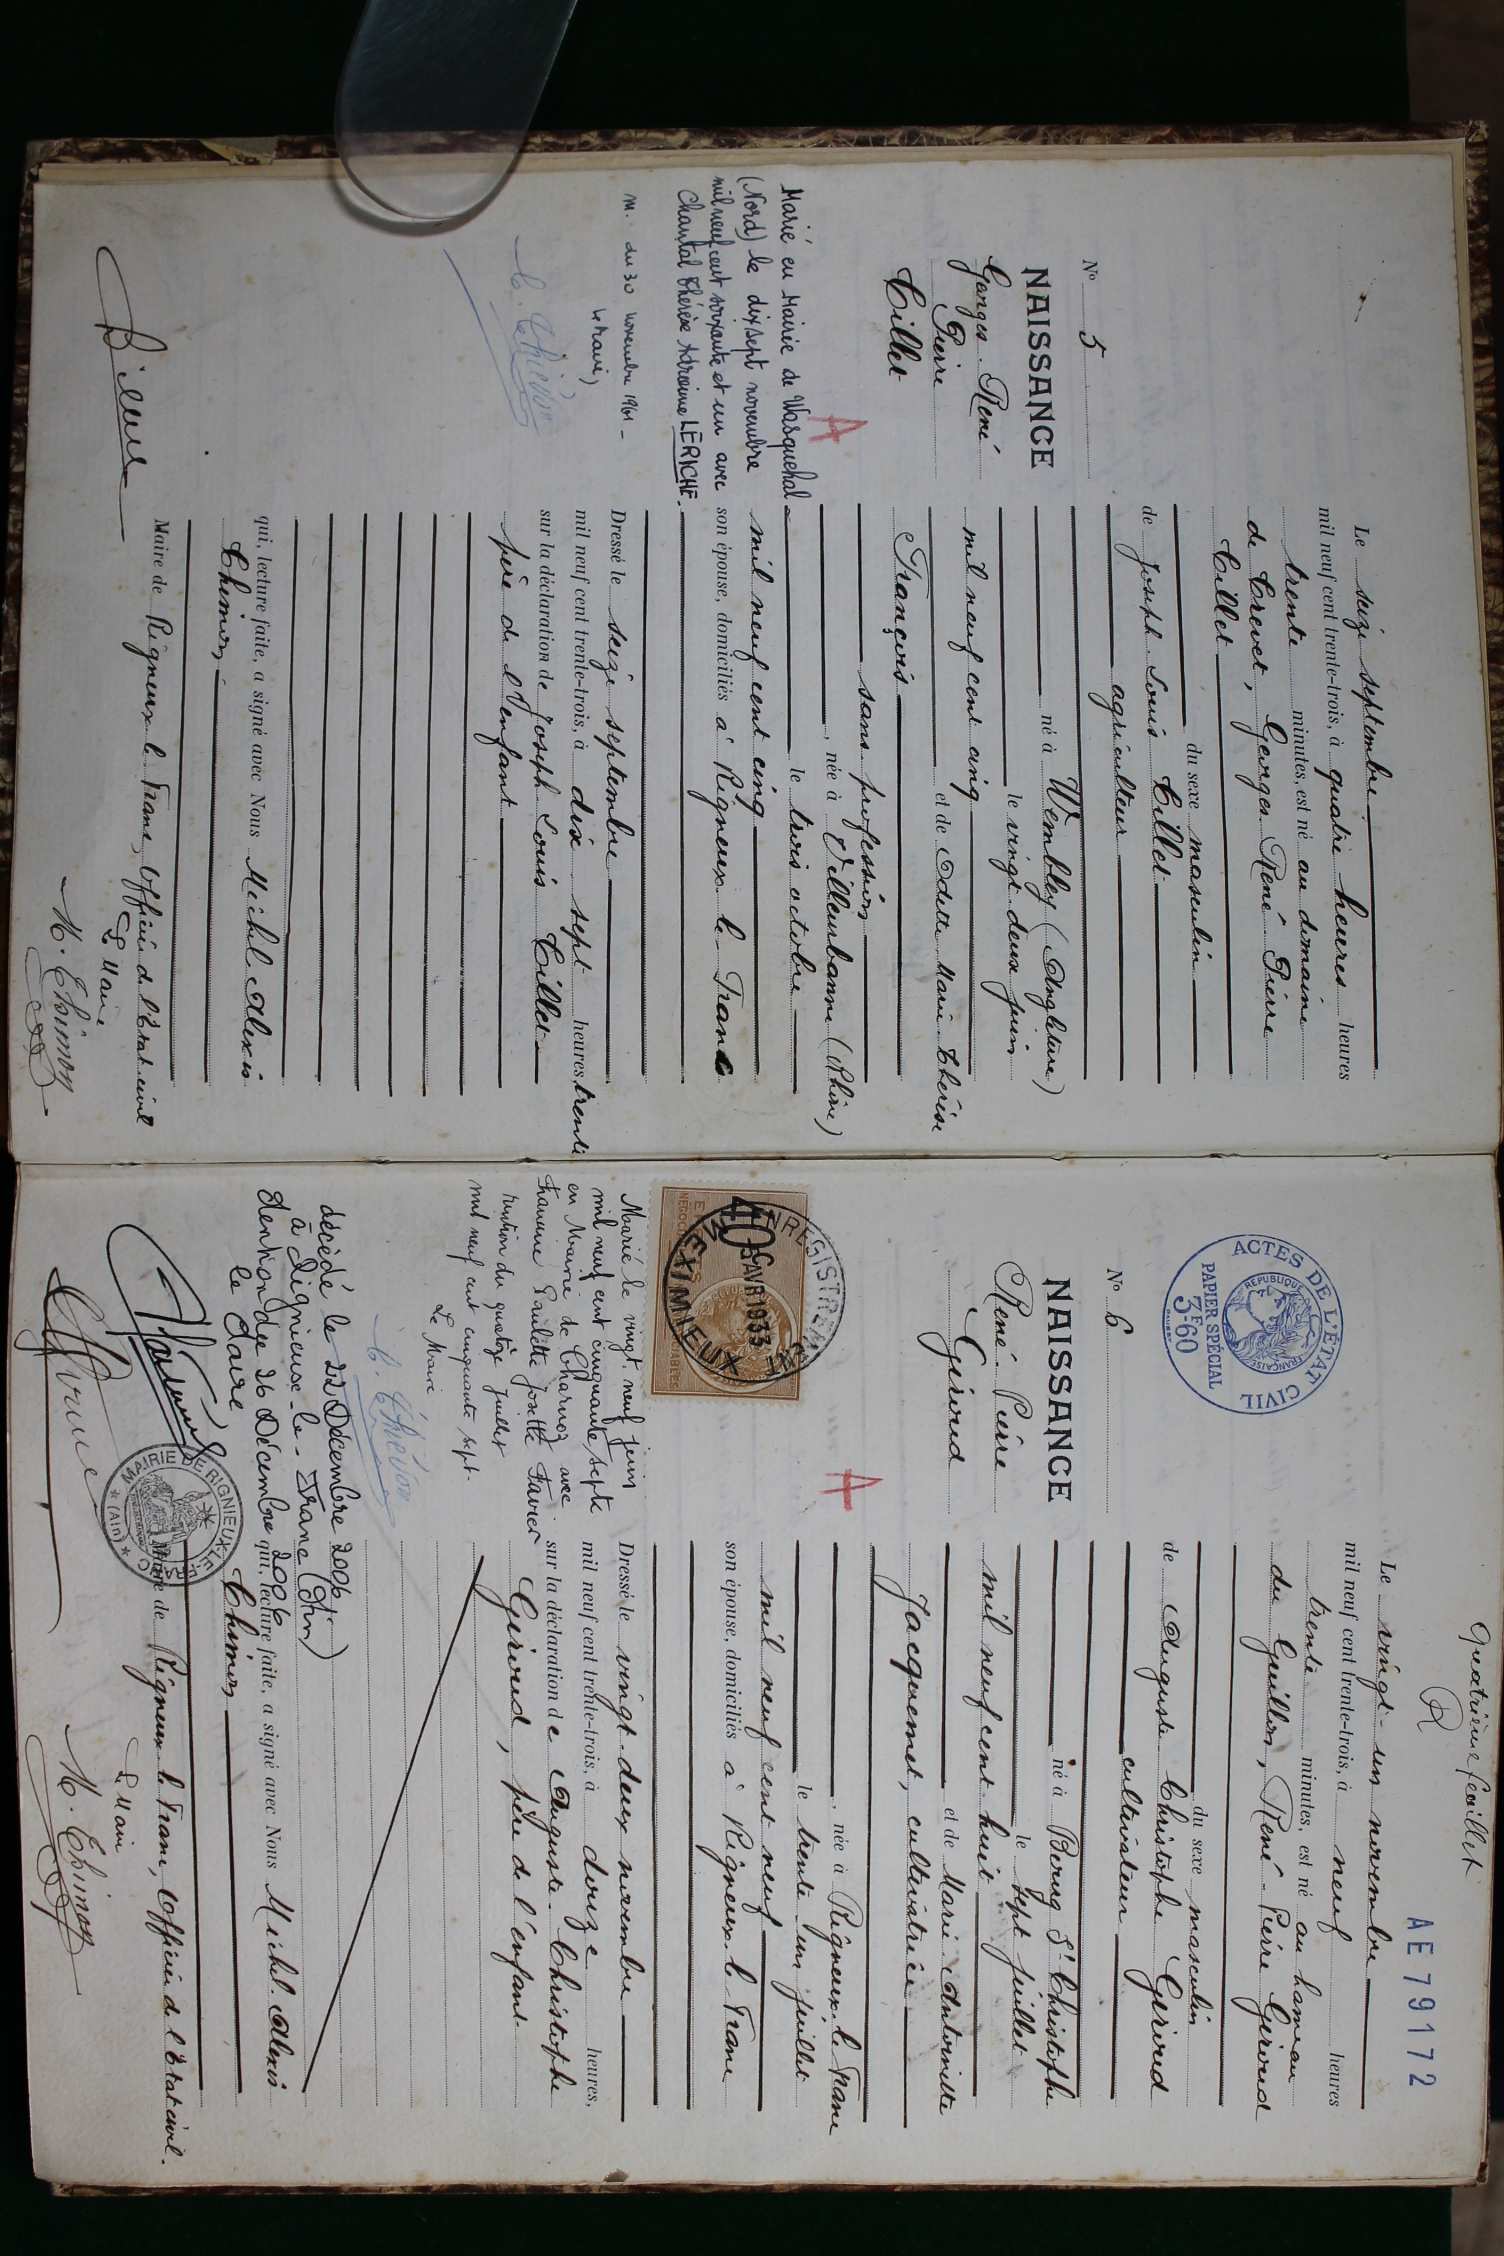 Nº 5
NAISSANCE
Georges René
Pierre
Cillet
A
Marié en Mairie de Wasquehal
(Nord) le dix sept novembre
mil neuf cent soixante et un avec
Chantal Thérèse LERICHE.
M. du 30 novembre 1961
Le Maire,
Le seize septembre
mil neuf cent trente-trois, à quatre heures heures
trente minutes, est né au domaine
de Crevet, Georges René Pierre
Cillet
du sexe masculin
de Joseph Louis Cillet
agriculteur
né à Wembley (Angleterre)
le vingt deux juin
mil neuf cent cinq
et de Odette Marie Thérèse
François
sans profession
, née à Villeurbanne (Rhône)
le trois octobre
mil neuf cent cinq
son épouse, domiciliés à Rigneux le Franc
Dressé le seize septembre
mil neuf cent trente-trois, à dix sept heures, trente
sur la déclaration de Joseph Louis Cillet
père de l'enfant
qui, lecture faite, a signé avec Nous Michel Alexis
Thimon
Maire de Rigneux le Franc, Officier de l'Etat civil
Le Maire
M. Thimon
quatrième feuillet
AE 79172
ACTES DE L'ÉTAT CIVIL
RÉPUBLIQUE FRANÇAISE
PAPIER SPÉCIAL
3F60
Nº 6
NAISSANCE
René Pierre
Giroud
A
ENREGISTREMENT
40c
5 AVR 1933
MEXIMIEUX
Marié le vingt neuf juin
mil neuf cent cinquante sept
en Mairie de Charnoz avec
Paulette Josette Favier
mention du quatorze juillet
mil neuf cent cinquante sept.
Le Maire
décédé le 22 Décembre 2006
à Rignieux-le-Franc (Ain)
Mention du 26 Décembre 2006
le Maire
MAIRIE DE RIGNIEUX-LE-FRANC
* (Ain) *
Le vingt-un novembre
mil neuf cent trente-trois, à neuf heures
trente minutes, est né au hameau
du Guillon, René-Pierre Giroud
du sexe masculin
de Auguste Christophe Giroud
cultivateur
né à Birieux St Christophe
le sept juillet
mil neuf cent huit
et de Marie Antoinette
Jacquemet, cultivatrice
, née à Rigneux le Franc
le trente un juillet
mil neuf cent neuf
son épouse, domiciliés à Rigneux le Franc
Dressé le vingt-deux novembre
mil neuf cent trente-trois, à douze heures,
sur la déclaration de Auguste Christophe
Giroud, père de l'enfant
qui, lecture faite, a signé avec Nous Michel Alexis
Thimon
Maire de Rigneux le Franc, Officier de l'Etat civil.
Le Maire
M. Thimon